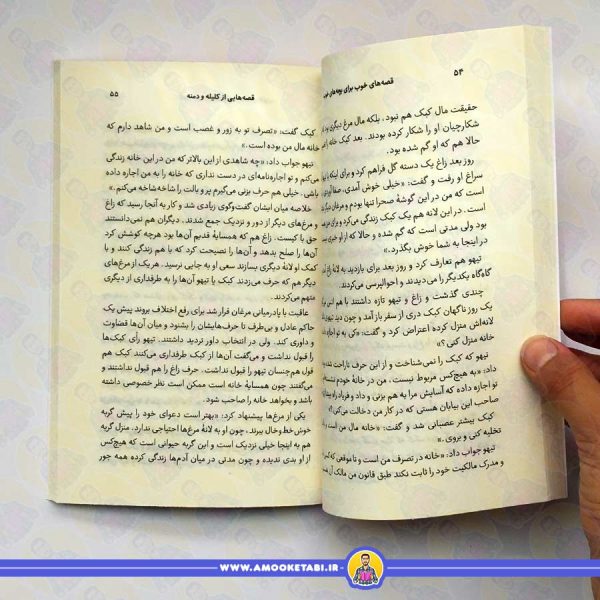 ۵۴
قصه‌های خوب برای بچه‌های
حقیقت مال کبک هم نبود، بلکه مال مرغ دیگری بود
شکارچیان او را شکار کرده بودند. بعد کبک خانه
حالا هم که او گم شده بود.
روز بعد زاغ یک دسته گل فراهم کرد و برای اینکه با
سراغ او رفت و گفت: «خیلی خوش آمدی، صفا آوردی
است که من در این گوشهٔ صحرا تنها بودم و مرغان دیگر
است. در این لانه هم یک کبک زندگی می‌کرد و برای من
بود ولی مدتی است که گم شده و حالا که از او خبری
در اینجا به شما خوش بگذرد.»
تیهو هم تعارف کرد و روز بعد برای بازدید به لانهٔ زاغ
گاه‌گاه یکدیگر را می‌دیدند و احوالپرسی می‌کردند.
چندی گذشت و زاغ و تیهو تازه داشتند با هم انس
یک روز ناگهان کبک دری از سفر باز آمد و چون دید تیهو
لانه‌اش منزل کرده اعتراض کرد و گفت: «کی به تو اجازه
خانه منزل کنی؟»
تیهو که کبک را نمی‌شناخت و از این حرف ناراحت شده
داد: «به هیچ‌کس مربوط نیست، من در خانهٔ خودم نشسته‌ام
تو اجازه داده که آسایش مرا به هم بزنی و داد و فریاد راه
صاحب این بیابان هستی که در کار من دخالت می‌کنی؟»
کبک بیشتر عصبانی شد و گفت: «خانه مال من است
تخلیه کنی و بروی.»
تیهو جواب داد: «خانه در تصرف من است و تا موقعی که کسی
و مدرک مالکیت خود را ثابت نکند طبق قانون من مالک آن
قصه‌هایی از کلیله و دمنه
۵۵
کبک گفت: «تصرف تو به زور و غصب است و من شاهد دارم که
خانه مال من بوده است.»
تیهو جواب داد: «چه شاهدی از این بالاتر که من در این خانه زندگی
می‌کنم و تو اجاره‌نامه‌ای در دست نداری که خانه را به من اجاره داده
باشی. خیلی هم حرف بزنی می‌گیرم پر و بالت را شاخه‌شاخه می‌کنم.»
خلاصه میان ایشان گفت‌وگوی زیادی شد و کار به آنجا رسید که زاغ
و مرغ‌های دیگر از دور و نزدیک جمع شدند. دیگران هم نمی‌دانستند
حق با کیست. زاغ هم که همسایهٔ قدیم آن‌ها بود هرچه کوشش کرد
آن‌ها را صلح بدهد و آن‌ها را نصیحت کرد که با هم زندگی کنند و با
کمک او لانهٔ دیگری بسازند سعی او به جایی نرسید. هر یک از مرغ‌های
دیگر هم که حرف می‌زدند کبک یا تیهو آن‌ها را به طرفداری از دیگری
متهم می‌کردند.
عاقبت با پادرمیانی مرغان قرار شد برای رفع اختلاف بروند پیش یک
حاکم عادل و بی‌طرف تا حرف‌هایشان را بشنود و میان آن‌ها قضاوت
و داوری کند. ولی در انتخاب داور تردید داشتند. تیهو رأی کبک‌ها
را قبول نداشت و می‌گفت آن‌ها از کبک طرفداری می‌کنند کبک هم
قول هم‌جنسان تیهو را قبول نداشت. حرف زاغ را هم قبول نداشتند و
می‌گفتند چون همسایهٔ خانه است ممکن است نظر خصوصی داشته
باشد و بخواهد خانه را صاحب شود.
یکی از مرغ‌ها پیشنهاد کرد: «بهتر است دعوای خود را پیش گربه
خوش خط‌وخال ببرند، چون او به لانهٔ مرغ‌ها احتیاجی ندارد. منزل گربه
هم به اینجا خیلی نزدیک است و این گربه حیوانی است که هیچ‌کس
از او بدی ندیده و چون مدتی در میان آدم‌ها زندگی کرده همه جور
WWW.AMOOKETABI.IR